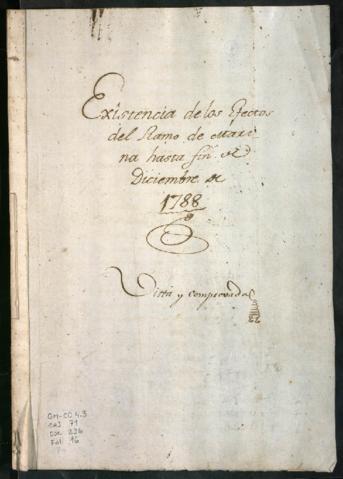 Existencia de los Efectos
del Ramo de Mari
na hasta fin de
Diciembre de
1788
Vista y comprovada
OM-CO 4.3
CAJ 71
DOC 236
Fol 16